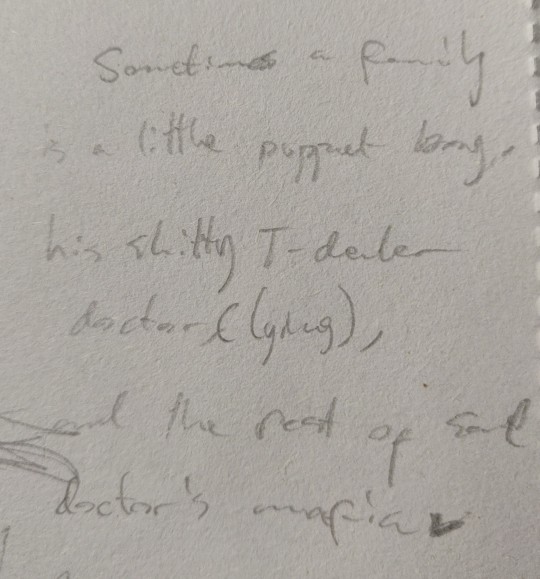 Sometimes a family
is a little puppet boy,
his shitty T-dealer
doctor (lying),
and the rest of said
doctor's mafia